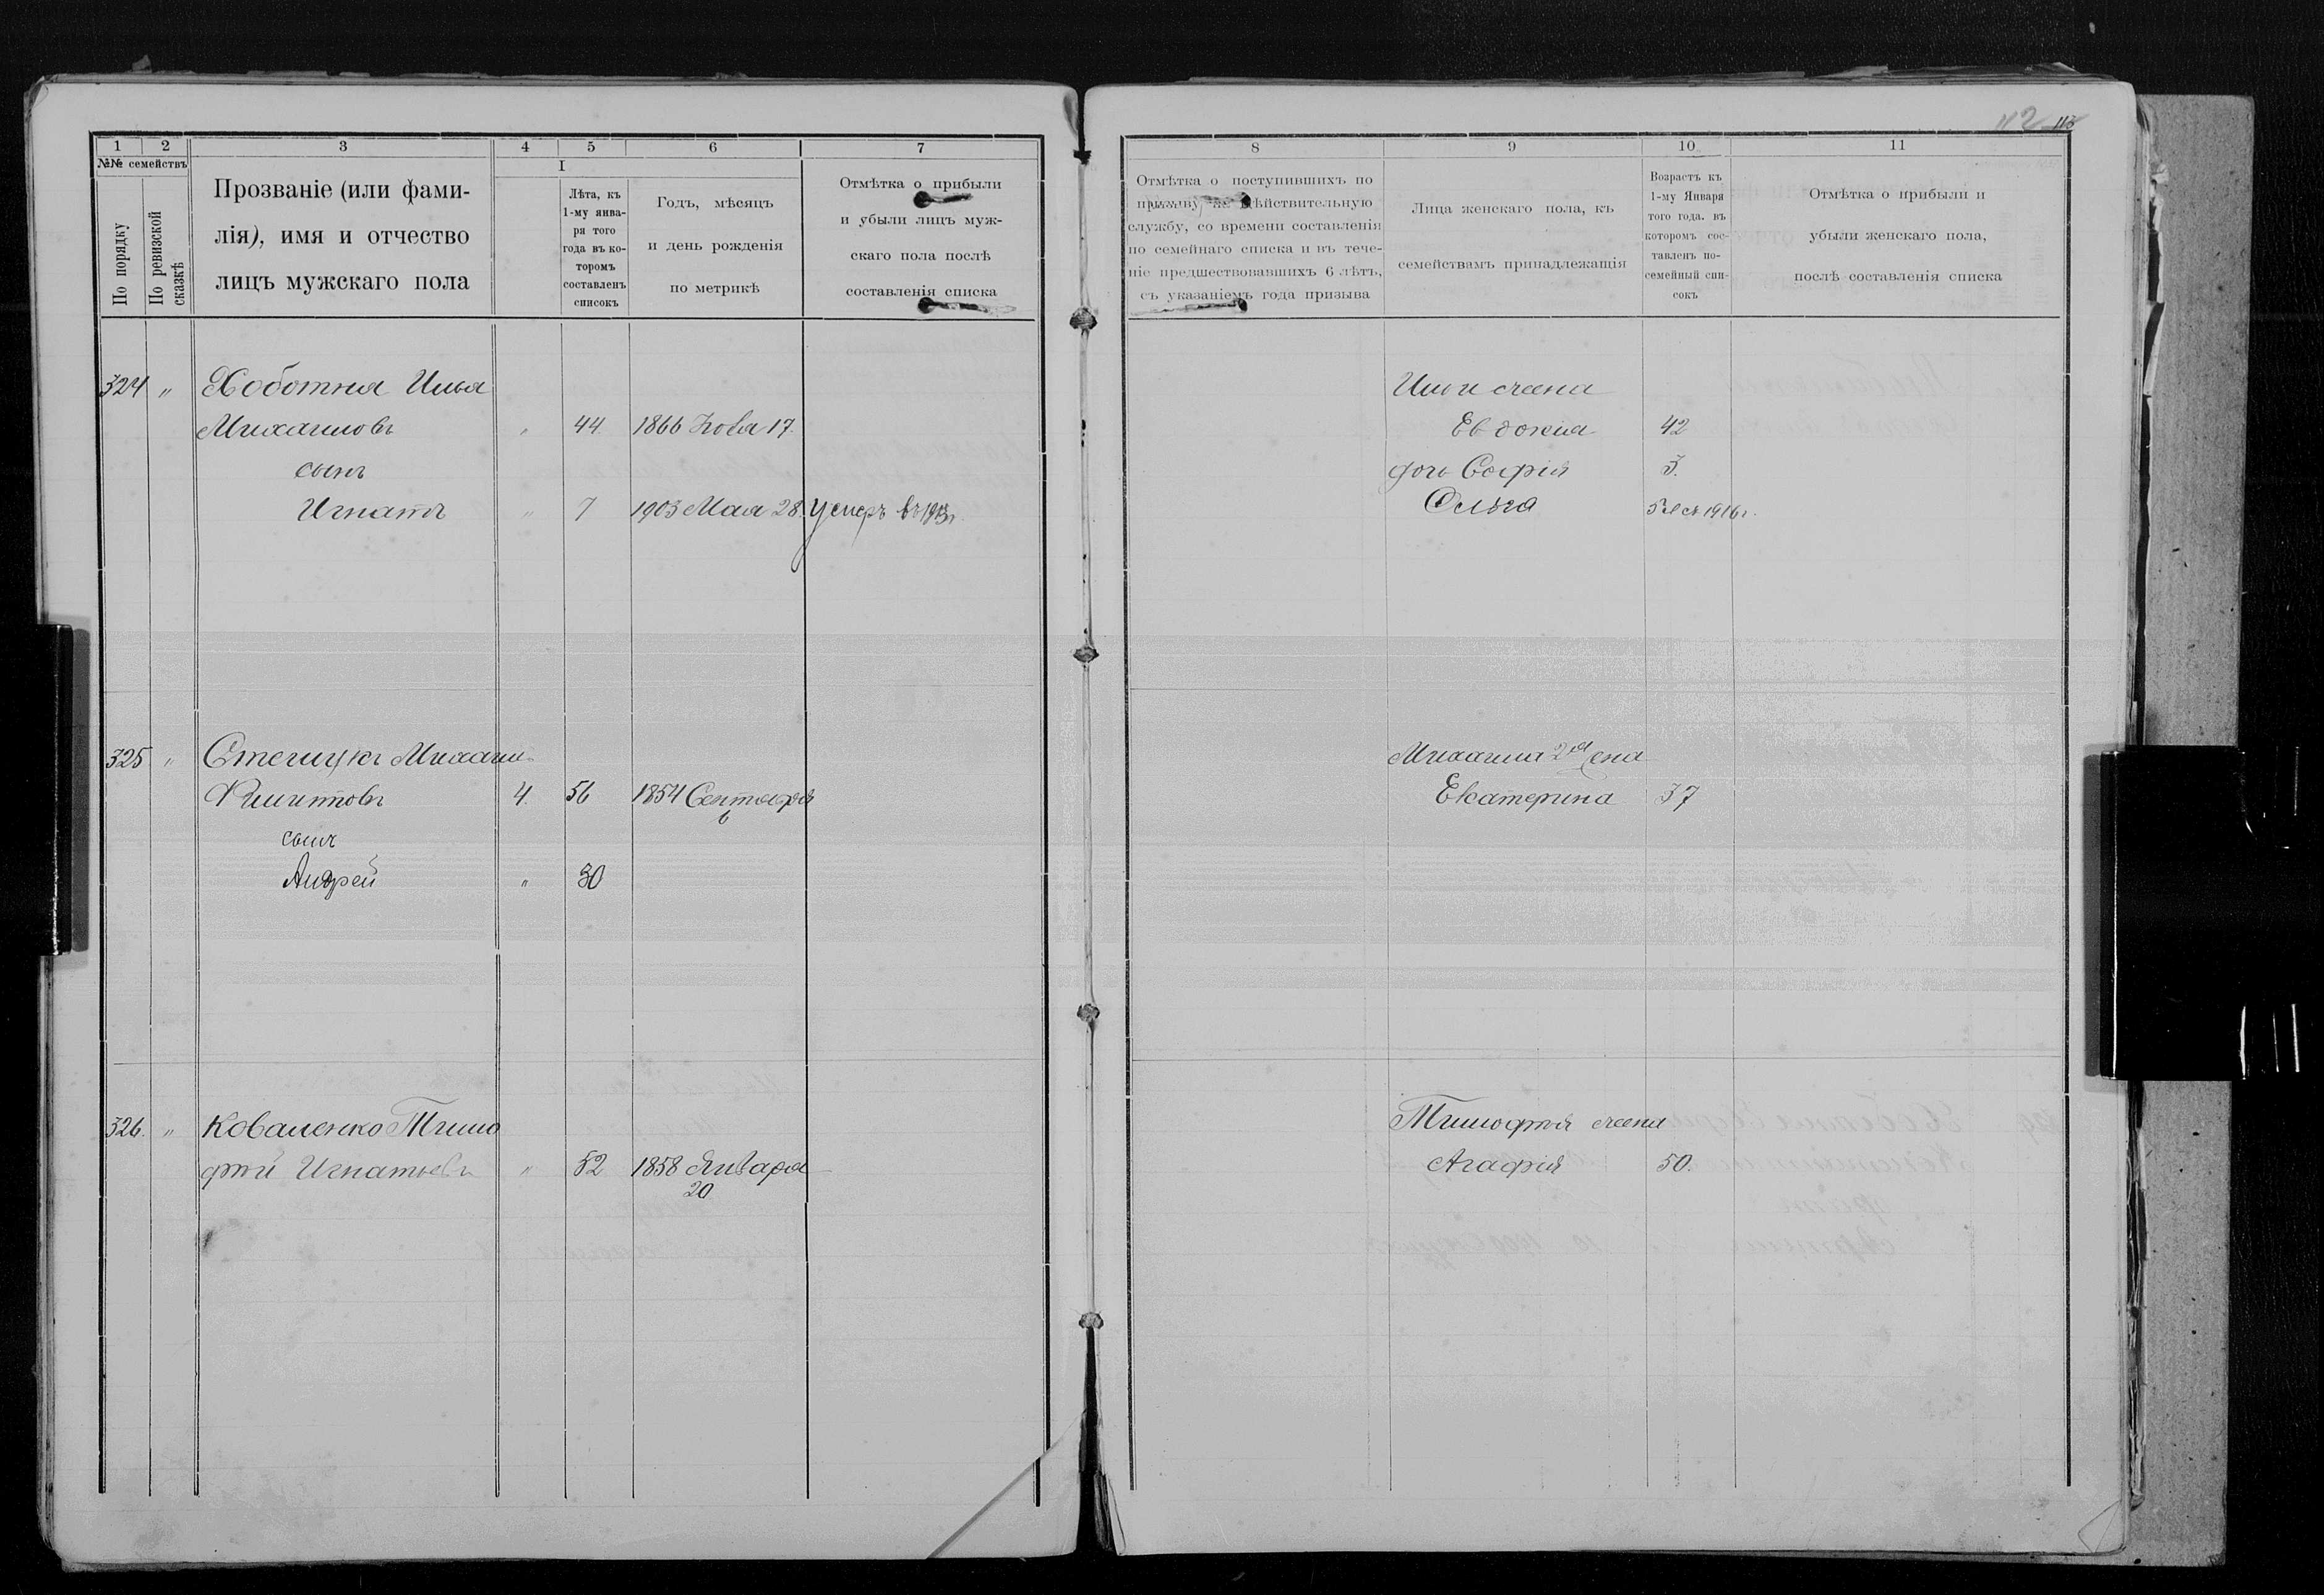 112 113
1 2 3 4 5 6 7
№№ семействъ
По порядку
По ревизской сказкѣ
Прозваніе (или фами-
лія), имя и отчество
лицъ мужскаго пола
I
Лѣта, къ
1-му янва-
ря того
года въ ко-
торомъ
составленъ
списокъ
Годъ, мѣсяцъ
и день рожденія
по метрикѣ
Отмѣтка о прибыли
и убыли лицъ муж-
скаго пола послѣ
составленія списка
324 " Хоботня Илья
Михаиловъ " 44 1866 Ноября 17.
сынъ
Игнатъ " 7 1903 Мая 28. Умеръ въ 1913г
325 " Михаилъ
Филиповъ 4. 56 1854 Сентября
6
сынъ
Андрей " 30
326. " Коваленко Тимо
фей Игнатьевъ " 52 1858 Января
20
8 9 10 11
Отмѣтка о поступившихъ по
призыву на дѣйствительную
службу, со времени составленія
по семейнаго списка и въ тече-
ніе предшествовавшихъ 6 лѣтъ,
съ указаніемъ года призыва
Лица женскаго пола, къ
семействамъ принадлежащія
Возрастъ къ
1-му Января
того года. въ
которомъ сос-
тавленъ по-
семейный спи-
сокъ
Отмѣтка о прибыли и
убыли женскаго пола,
послѣ составленія списка
Ильи жена
Евдокия 42
дочь Софія 3.
Ольга 1916г.
Михаила 2я жена
Екатерина 37
Тимофея жена
Агафія 50.